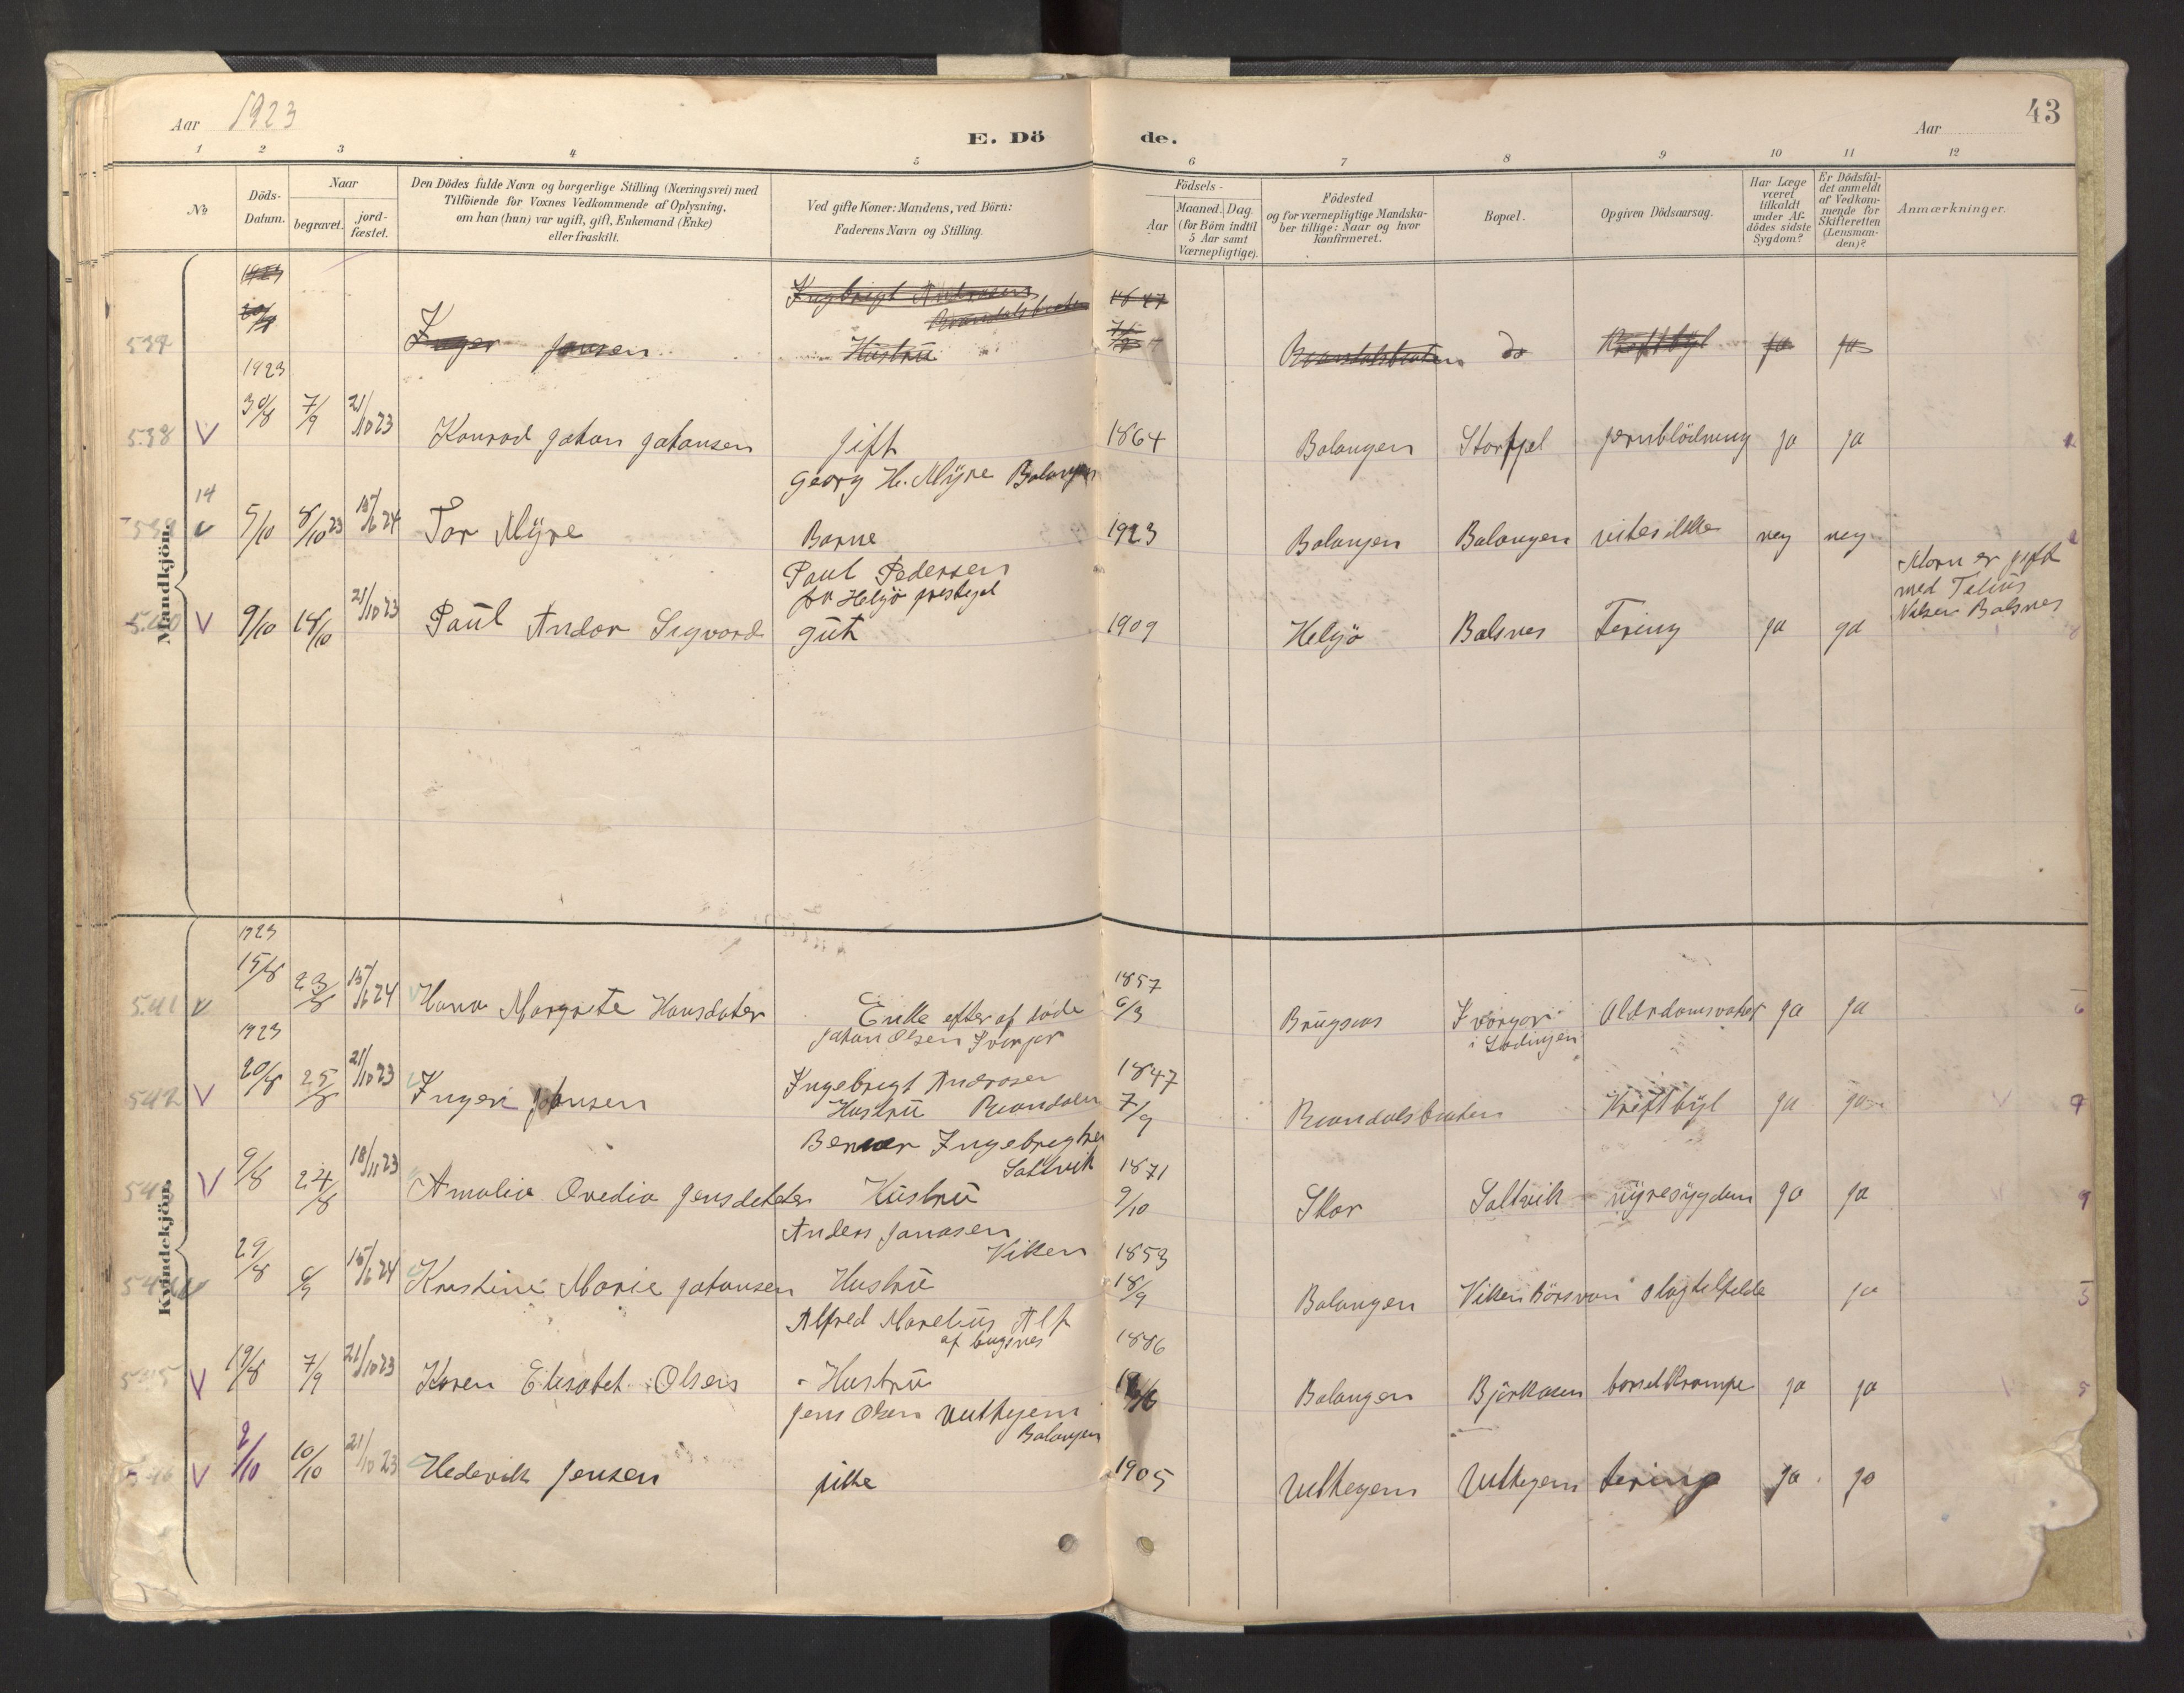 Aar 1923
E. Döde.
Aar
43
1 2 3 4 5 6 7 8 9 10 11 12
No
Döds-Datum.
Naar
begravet.
jord-fæstet.
Den Dödes fulde Navn og borgerlige Stilling (Næringsvei) med
Tilföiende for Voxnes Vedkommende af Oplysning,
om han (hun) var ugift, gift, Enkemand (Enke)
eller fraskilt.
Ved gifte Koner: Mandens, ved Börn:
Faderens Navn og Stilling.
Födsels-
Aar
Maaned. Dag
(for Börn indtil
5 Aar samt
Værnepligtige).
Födested
og for værnepligtige Mandska-
ber tillige: Naar og hvor
konfirmeret.
Bopæl.
Opgiven Dödsaarsag.
Har Læge
været
tilkaldt
under Af-
dödes sidste
Sygdom?
Er Dödsfal-
det anmeldt
af Vedkom-
mende for
Skifteretten
(Lensman-
den)?
Anmærkninger.
Mandkjön.
1923
Ingbrigt Andrasens
1847
Inger Jonsen Hustru do Kreftbyl ja ja
1923
538 V 30/8 7/9 21/10 23 Konrad Johan Johansen gift 1864 Balangen Storfjel jernblödning ja ja
Georg H. Myre Balangen
14
539 v 5/10 8/10 23 15/6 24 Tor Myre Barne 1923 Balangen Balangen vites ikke nej nej
Paul Pedersen
fra Helgö prestegel
Moren er gift
med Telius
Balsnes
540 V 9/10 18/10 21/10 23 Paul Andor Sigvard gut 1909 Helgö Balsnes Tering ja ja
Kvindekjön.
1923
541 v 15/8 23/8 15/6 24 Hana Margrete Hansdater Enke efter af döde 1857 6/3 Brugsnes Alderdomsvakhet ja ja
Johan Olsen
i Lödingen
1923
542 V 20/8 25/8 21/10 23 Ingeri Jonsen Ingebrigt Andrasen 1847
Hustru 7/9 Kreftbyl ja ja
Bernar Ingebregtsen
Saltvik 1871
543 V 9/8 24/8 18/11 23 Amalie Ovedia Jensdatter Hustru 9/10 Skar Saltvik nyresygdom ja ja
Anders Jonasen
Viken 1853
544 v 29/8 6/9 15/6 24 Kristine Marie Johansen Hustru 18/9 Balangen Viken Börsvan slagtelfelde ja
Alfred Marelius Alf
af bugsnes 1886
545 V 19/8 7/9 21/10 23 Karen Elisabet Olsens Hustru Balangen Björkaasen barselkrampe ja ja
Jens Olsen
Balangen
546 V 2/10 10/10 21/10 23 Hedevik Jensen pike 1905 tering ja ja